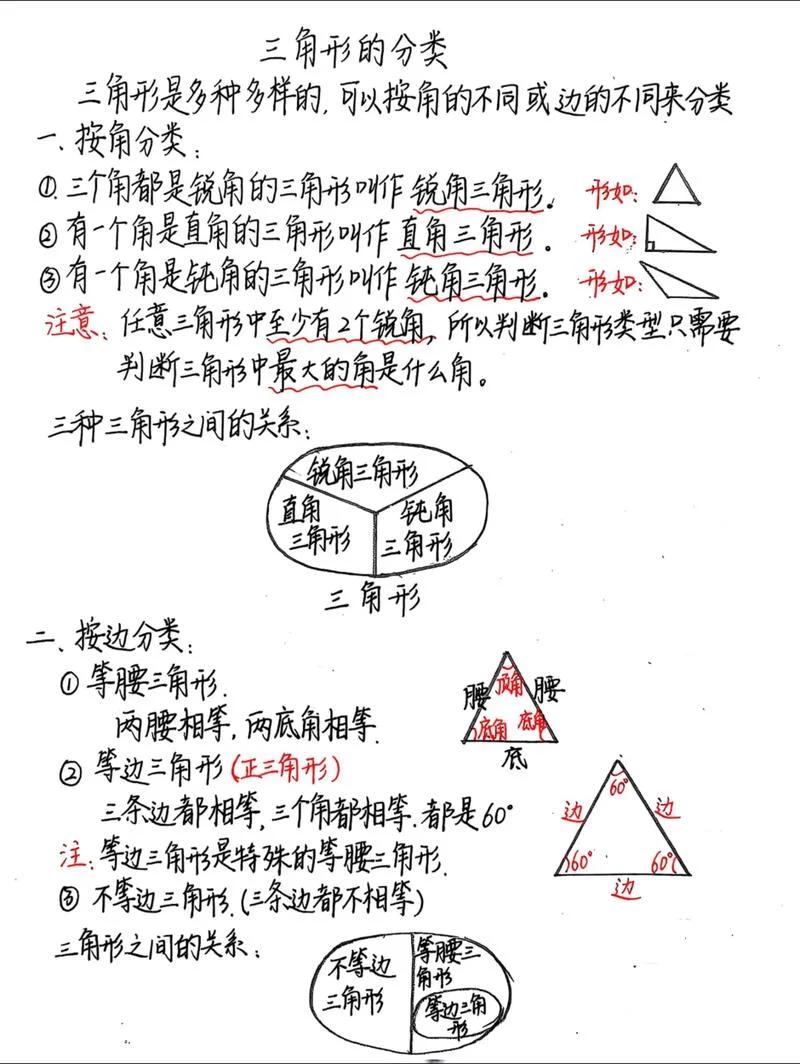 三角形的分类
三角形是多种多样的,可以按角的不同或边的不同来分类
一、按角分类:
①.三个角都是锐角的三角形叫作 锐角三角形。 形如:
②有一个角是直角的三角形叫作 直角三角形。 形如:
③有一个角是钝角的三角形叫作 钝角三角形。 形如:
注意:任意三角形中至少有2个锐角,所以判断三角形类型只需要
判断三角形中最大的角是什么角。
三种三角形之间的关系:
锐角三角形
直角
三角形
钝角
三角形
三角形
二、按边分类:
①等腰三角形.
两腰相等,两底角相等.
腰 顶角 腰
底角 底角
底
② 等边三角形(正三角形)
三条边都相等,三个角都相等.都是60°
注:等边三角形是特殊的等腰三角形.
60°
边 边
60° 60°
边
③ 不等边三角形.(三条边都不相等)
三角形之间的关系:
不等边
三角形
等腰三
角形
等边三角
形